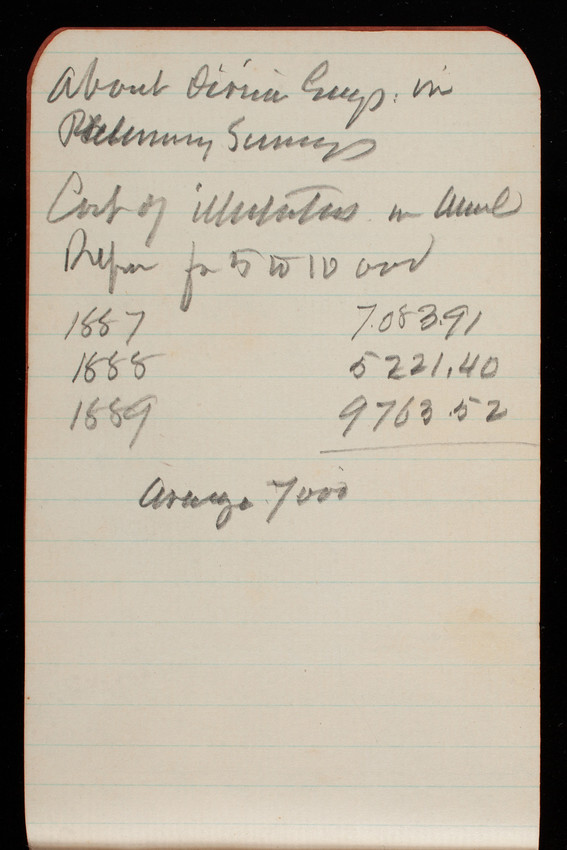 About Division Engs. in
Preliminary Surveys
Cost of illustrations in Annual
Repor for 5 to 10 000
1887 7.083.91
1888 5221.40
1889 9763.52
Average 7000